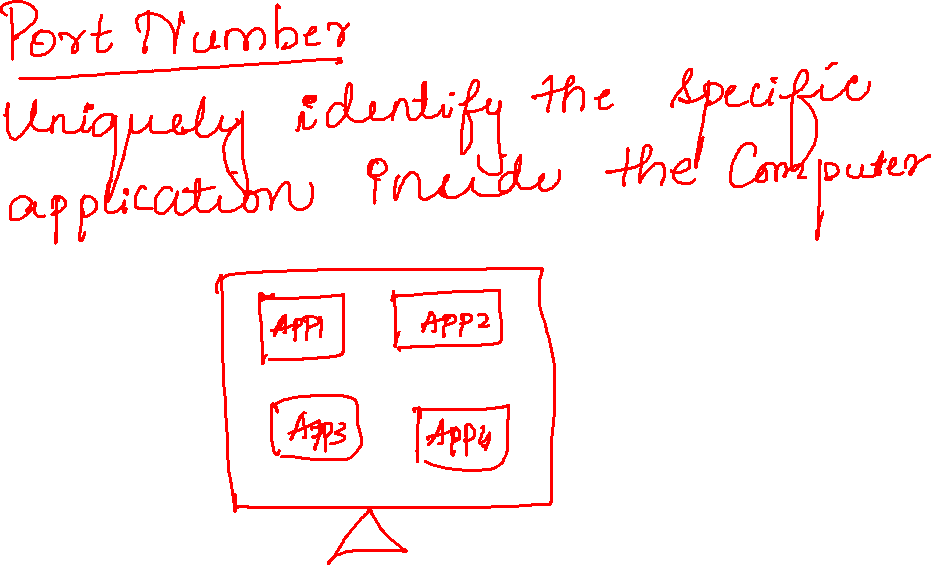 Port Number
Uniquely identify the specific
application inside the Computer
APP1
APP2
App3
APP4